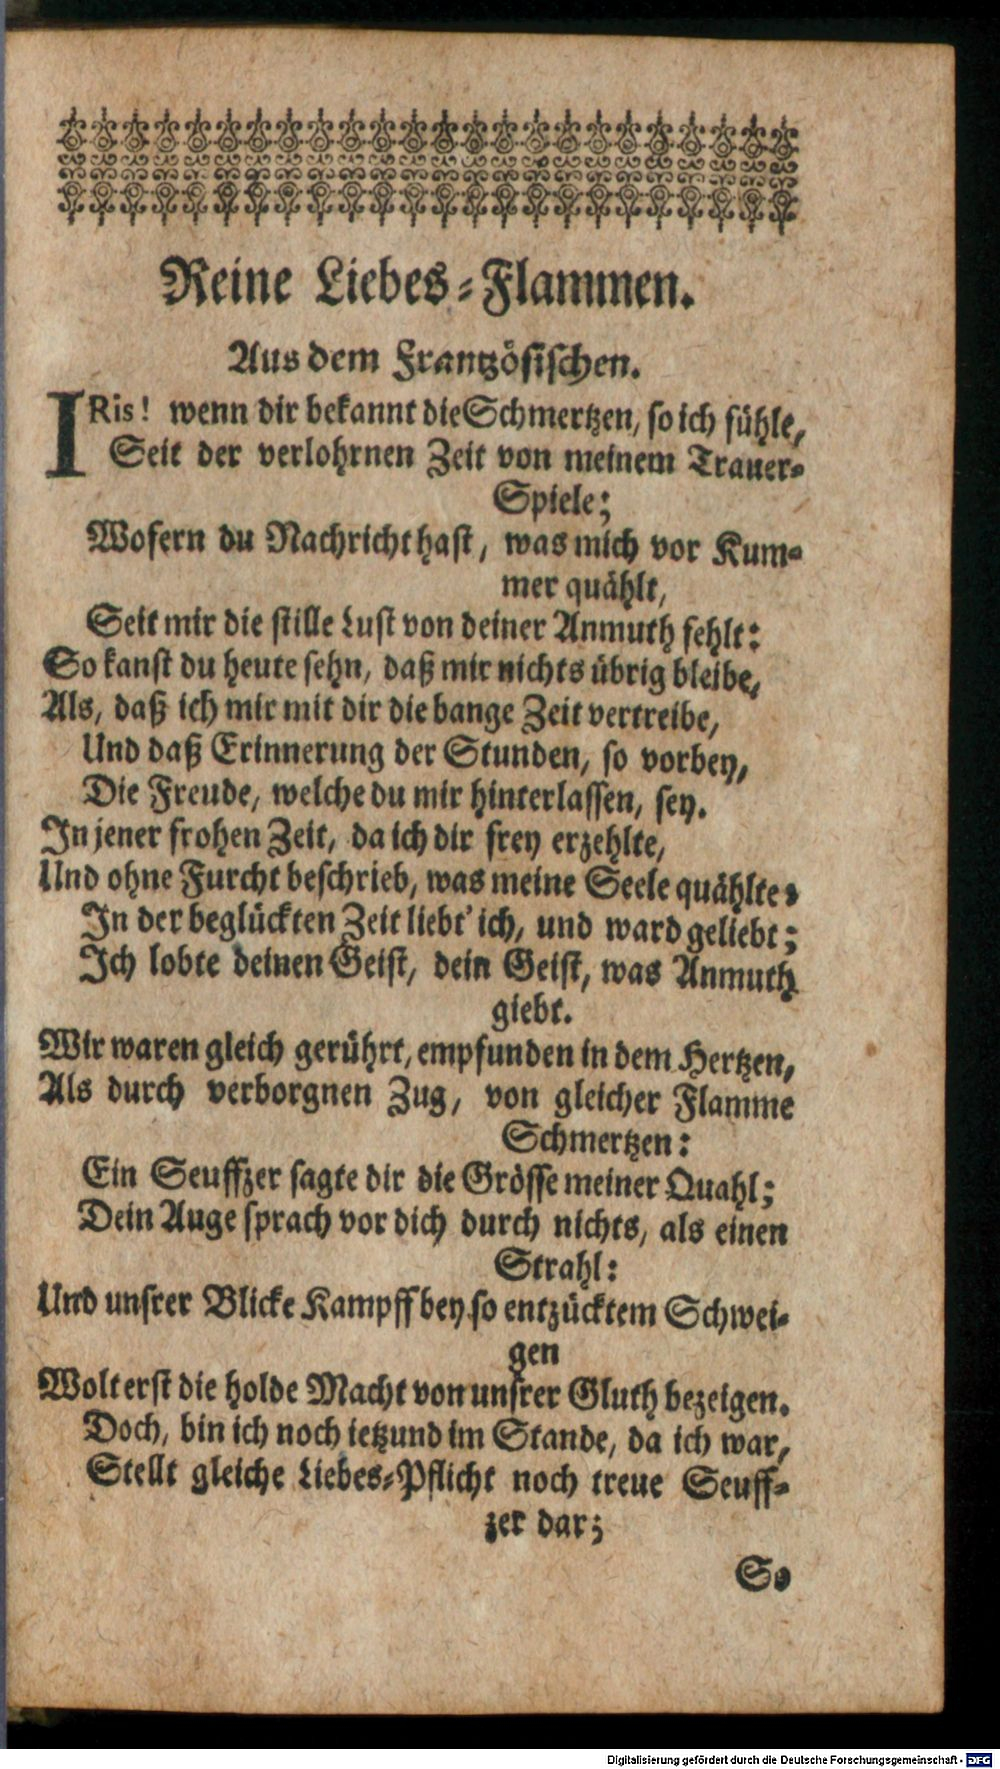 Reine Liebes-Flammen.
Aus dem Frantzösischen.
IRis! wenn dir bekannt die Schmertzen, so ich fühle,
Seit der verlohrnen Zeit von meinem Trauer-
Spiele;
Wofern du Nachricht hast, was mich vor Kum-
mer quählt,
Seit mir die stille Lust von deiner Anmuth fehlt:
So kanst du heute sehn, daß mir nichts übrig bleibe,
Als, daß ich mir mit dir die bange Zeit vertreibe,
Und daß Erinnerung der Stunden, so vorbey,
Die Freude, welche du mir hinterlassen, sey.
In jener frohen Zeit, da ich dir frey erzehlte,
Und ohne Furcht beschrieb, was meine Seele quählte,
In der beglückten Zeit liebt' ich, und ward geliebt;
Ich lobte deinen Geist, dein Geist, was Anmuth
giebt.
Wir waren gleich gerührt, empfunden in dem Hertzen,
Als durch verborgnen Zug, von gleicher Flamme
Schmertzen:
Ein Seuffzer sagte dir die Grösse meiner Quahl;
Dein Auge sprach vor dich durch nichts, als einen
Strahl:
Und unsrer Blicke Kampff bey so entzücktem Schwei-
gen
Wolt erst die holde Macht von unsrer Gluth bezeigen.
Doch, bin ich noch ietzund im Stande, da ich war,
Stellt gleiche Liebes-Pflicht noch treue Seuff-
zer dar;
So
Digitalisierung gefördert durch die Deutsche Forschungsgemeinschaft - DFG